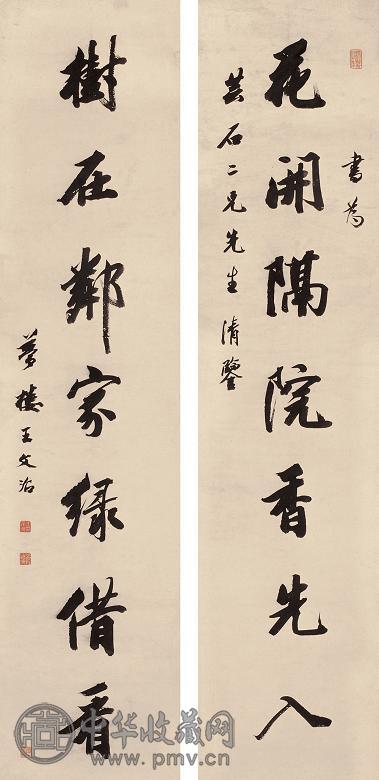 書為
花開隔院香先入
芸石二兄先生清鑒
樹在鄰家綠借看
夢樓王文治
中华收藏网
www.pmv.cn